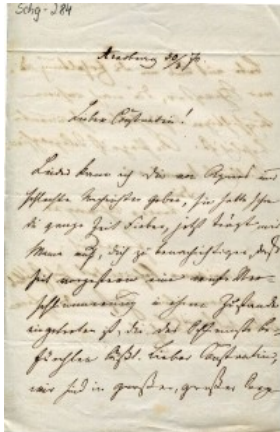 Schg-284
Straßburg 30/5 76
Lieber Constantin!
Leider kann ich Dir von Agnes nur
schlechte Nachrichten geben, sie hatte schon
die ganze Zeit Fieber, jetzt trägt mir
Mama auf, dich zu benachrichtigen, daß
seit vorgestern eine neue Ver-
schlimmerung in ihrem Zustande
eingetreten ist, die das Schlimmste be-
fürchten läßt. Lieber Constantin,
wir sind in großer, großer Sorge